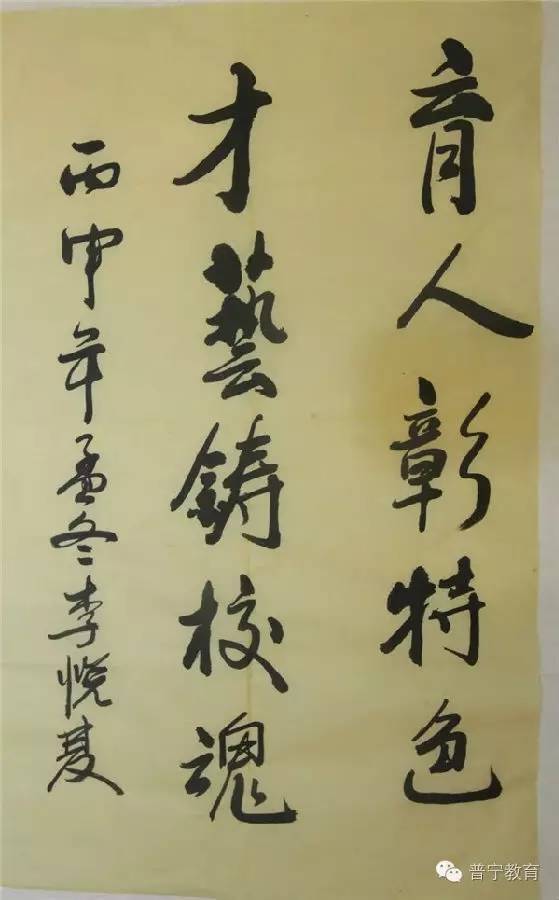 育人彰特色
才藝鋳校魂
丙申年孟冬李悦夏
普宁教育